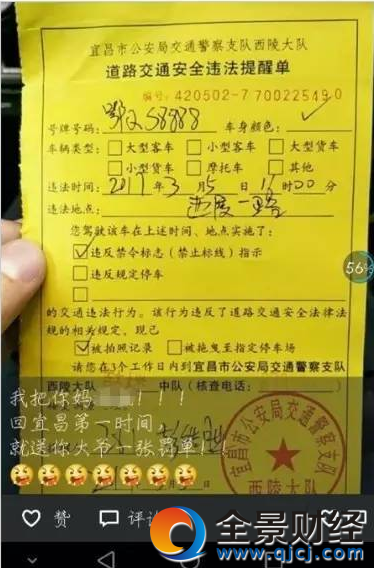 宜昌市公安局交通警察支队西陵大队
道路交通安全违法提醒单
编号:420502-7 700225490
号牌号码: 车身颜色:
车辆类型: 大型客车 小型客车 大型货车
小型货车 摩托车 其他
违法时间: 2017年3月15日 时00分
违法地点: 西陵一路
您驾驶该车在上述时间、地点实施了:
违反禁令标志(禁止标线)指示
违反规定停车
的交通违法行为。该行为违反了道路交通安全法律法
规的相关规定,现已
被拍照记录 被拖曳至指定停车场
请您在3个工作日内到宜昌市公安局交通警察支队
西陵大队 中队(核查电话:
我把你妈 !!!
回宜昌第一时间
就送你大爷一张罚单!
宜昌市公安局交通警察支队
西陵大队
56%
赞
评
全景财经
www.qjcj.com